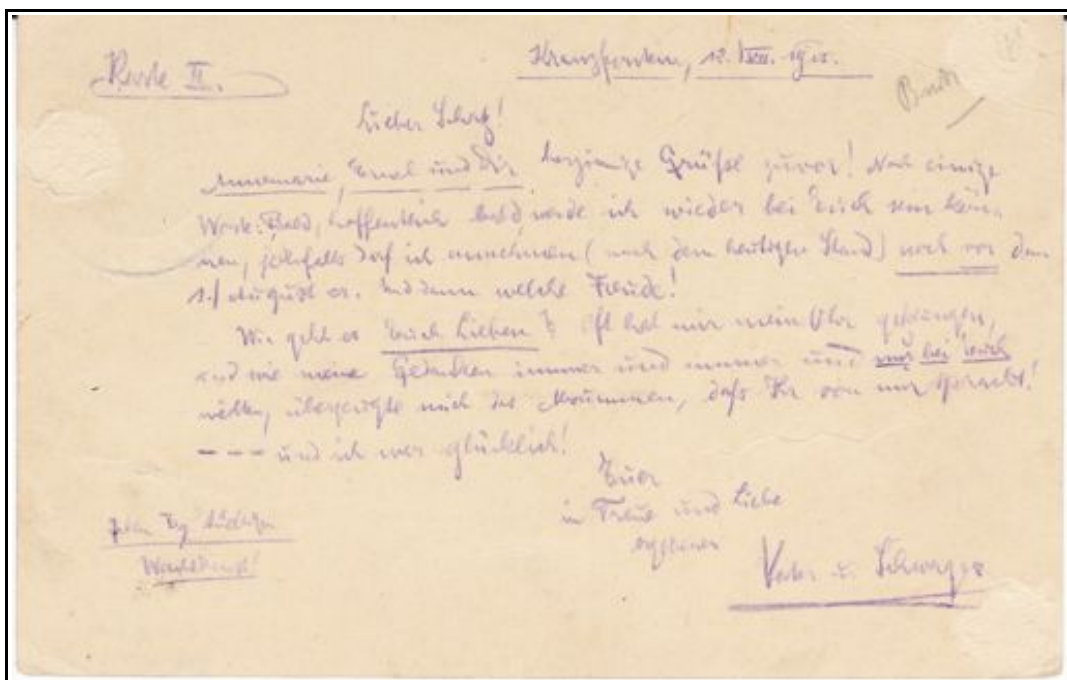 Karte II.
12. VII. 19
Lieber Schatz!
Annemarie, und Dir herzinnige Grüße zuvor! Noch einige
Worte. Bald, hoffentlich bald werde ich wieder bei Euch sein kön-
nen, jedenfalls darf ich annehmen (nach dem heutigen Stand) noch vor dem
1. August cr. Und dann welche Freude!
Wie geht es Euch Lieben? Oft hat mir mein Ohr geklungen,
und wie meine Gedanken immer und immer und nur bei Euch
weilten, überzeugte mich das, daß Ihr von mir spracht!
--- und ich war glücklich!
Euer
in Treue und Liebe
ergebener
Vater u. Schwager